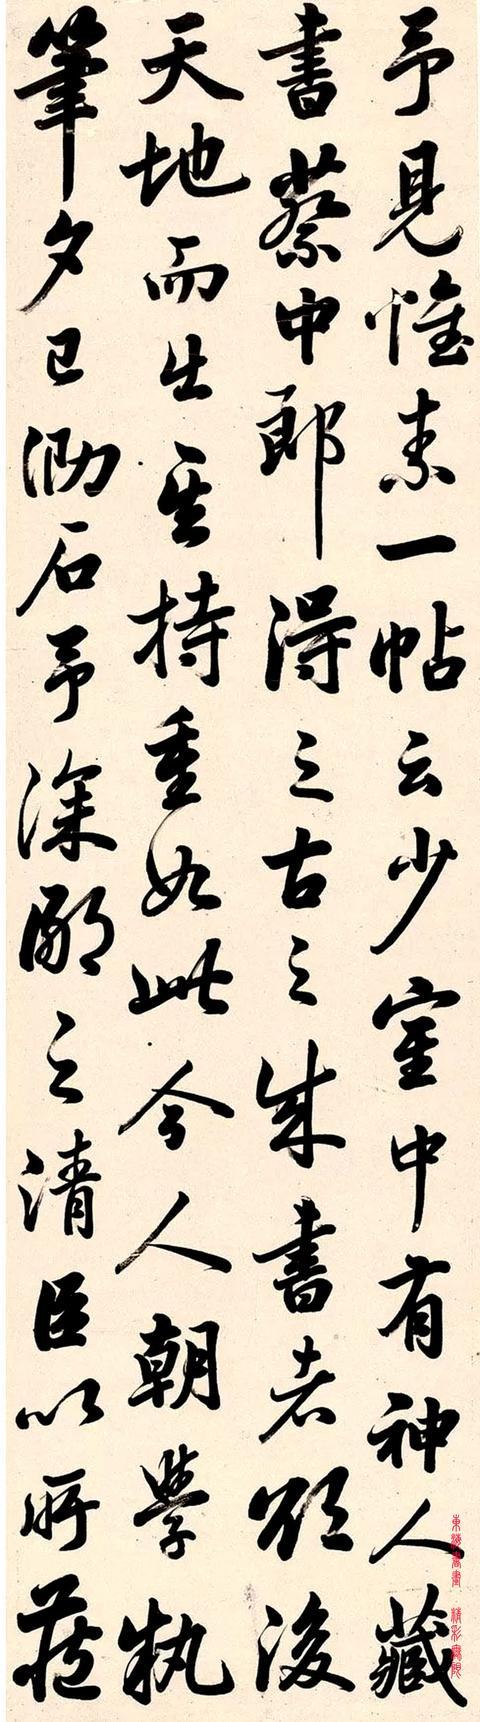 予見懷素一帖云少室中有神人藏
書蔡中郎得之古之成書者欲後
天地而生其持重如此今人朝學執
筆夕已勒石予深鄙之清臣以所藏
東海書畫 精彩無限